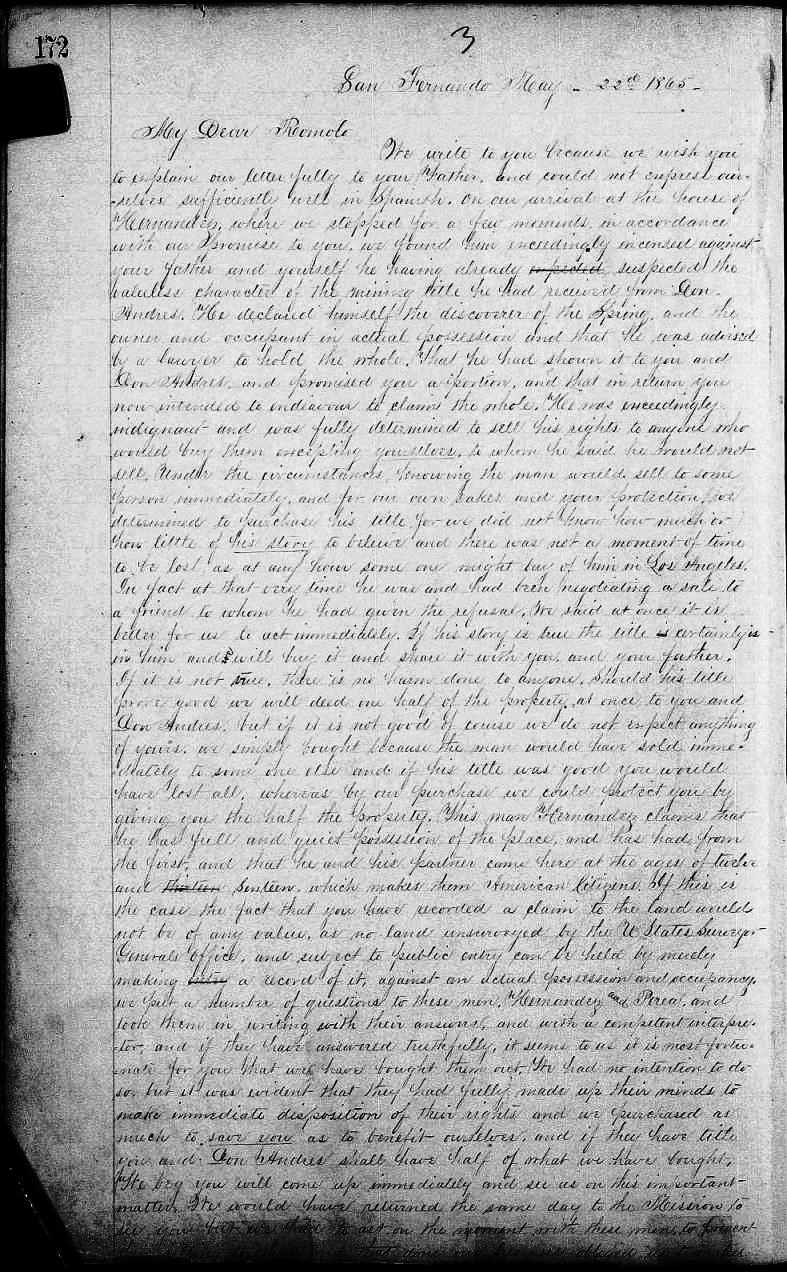 172
3
San Fernando May - 22d 1865 -
My Dear Romolo
We write to you because we wish you
to explain our letter fully to your Father, and could not express our-
-selves sufficiently well in Spanish. On our arrival at the house of
Hernandez, where we stopped for a few moments, in accordance
with our promise to you, we found him exceedingly incensed against
your father and yourself he having already suspected the
valueless character of the mining title he had received from Don
Andres. He declared himself the discoverer of the Spring, and the
owner and occupant in actual possession and that he was advised
by a lawyer to hold the whole. That he had shown it to you and
Don Andres, and promised you a portion, and that in return you
now intended to endeavour to claim the whole. He was exceedingly
indignant and was fully determined to sell his rights to anyone who
would buy them excepting yourselves, to whom he said he would not
sell. Under the circumstances, knowing the man would sell to some
person immediately, and for our own sakes and your protection, we
determined to purchase his title, for we did not know how much or
how little of his story to believe and there was not a moment of time
to be lost as at any hour some one might buy of him in Los Angeles.
In fact at that very time he was and had been negotiating a sale to
a friend to whom he had given the refusal. We said at once it is
better for us to act immediately. If his story is true the title is certainly in
in him and will buy it and share it with you, and your father.
If it is not true, there is no harm done to anyone. Should his title
prove good we will deed one half of the property at once to you and
Don Andres, but if it is not good of course we do not expect anything
of yours. we simply bought because the man would have sold imme-
-diately to some one else and if his title was good you would
have lost all, whereas by our purchase we could protect you by
giving you the half the property. This man Hernandez claims that
he has full and quiet possession of the place, and has had from
the first, and that he and his partner came here at the ages of twelve
and thirteen sixteen, which makes them American Citizens. If this is
the case the fact that you have recorded a claim to the land would
not be of any value, as no land unsurveyed by the U States Surveyor
Generals Office, and subject to public entry can be held by merely
making a record of it, against an actual possession and occupancy.
we put a number of questions to these men, Hernandez and Perea, and
took them in writing with their answers, and with a competent interpre-
-tor, and if they have answered truthfully, it seems to us it is most fortu-
-nate for you that we have bought them out. We had no intention to do
so, but it was evident that they had fully made up their minds to
make immediate disposition of their rights and we purchased as
much to save you as to benefit ourselves, and if they have title
you and Don Andres shall have half of what we have bought.
We beg you will come up immediately and see us on this important
matter. We would have returned the same day to the Mission to
see you but we had to act on the moment with these men, to prevent